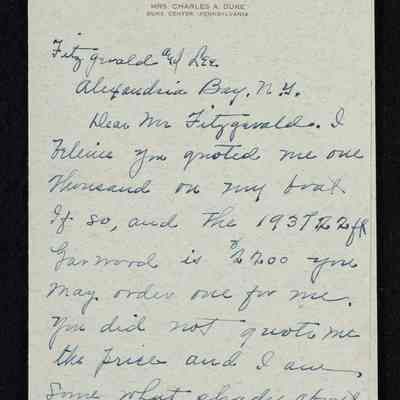 MRS. CHARLES A. DUKE
DUKE CENTER, PENNSYLVANIA
Fitzgerald and Lee.
Alexandria Bay, N.Y.
Dear Mr Fitzgerald. I
beleive you quoted me one
thousand on my boat
If so, and the 1937 22 ft
Garwood is $2200 you
may order one for me.
You did not quote me
the price and I am
some what about